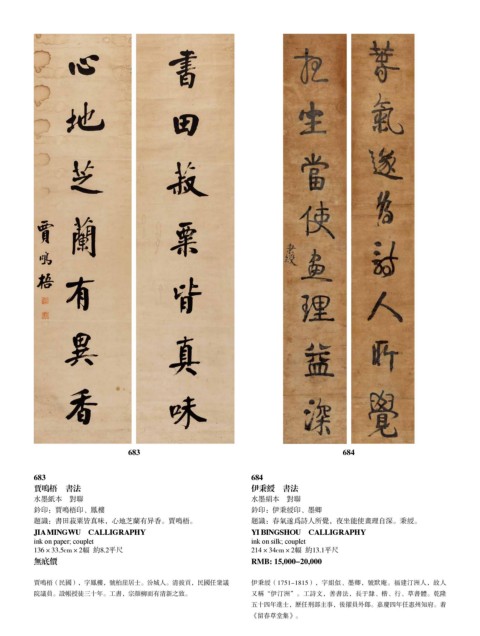 書田菽粟皆真味
心地芝蘭有異香
賈鳴梧
683
春氣遂為詩人所覺
夜坐當使畫理益深
秉綬
684
683
賈鳴梧 書法
水墨紙本 對聯
鈐印:賈鳴梧印、鳳樓
題識:書田菽粟皆真味,心地芝蘭有异香。賈鳴梧。
JIA MINGWU CALLIGRAPHY
ink on paper; couplet
136 × 33.5cm × 2幅 約8.2平尺
無底價
賈鳴梧(民國),字鳳樓,號柏崖居士。汾城人。清拔貢,民國任衆議
院議員。設帳授徒三十年。工書,宗顏柳而有清新之致。
684
伊秉綬 書法
水墨絹本 對聯
鈐印:伊秉綬印、墨卿
題識:春氣遂爲詩人所覺,夜坐能使畫理自深。秉綬。
YI BINGSHOU CALLIGRAPHY
ink on silk; couplet
214 × 34cm × 2幅 約13.1平尺
RMB: 15,000–20,000
伊秉綬(1751–1815),字頌似、墨卿,號默庵。福建汀洲人,故人
又稱“伊汀洲”。工詩文,善書法,長于隸、楷、行、草書體。乾隆
五十四年進士,歷任刑部主事,後擢員外郎。嘉慶四年任惠州知府。著
《留春草堂集》。